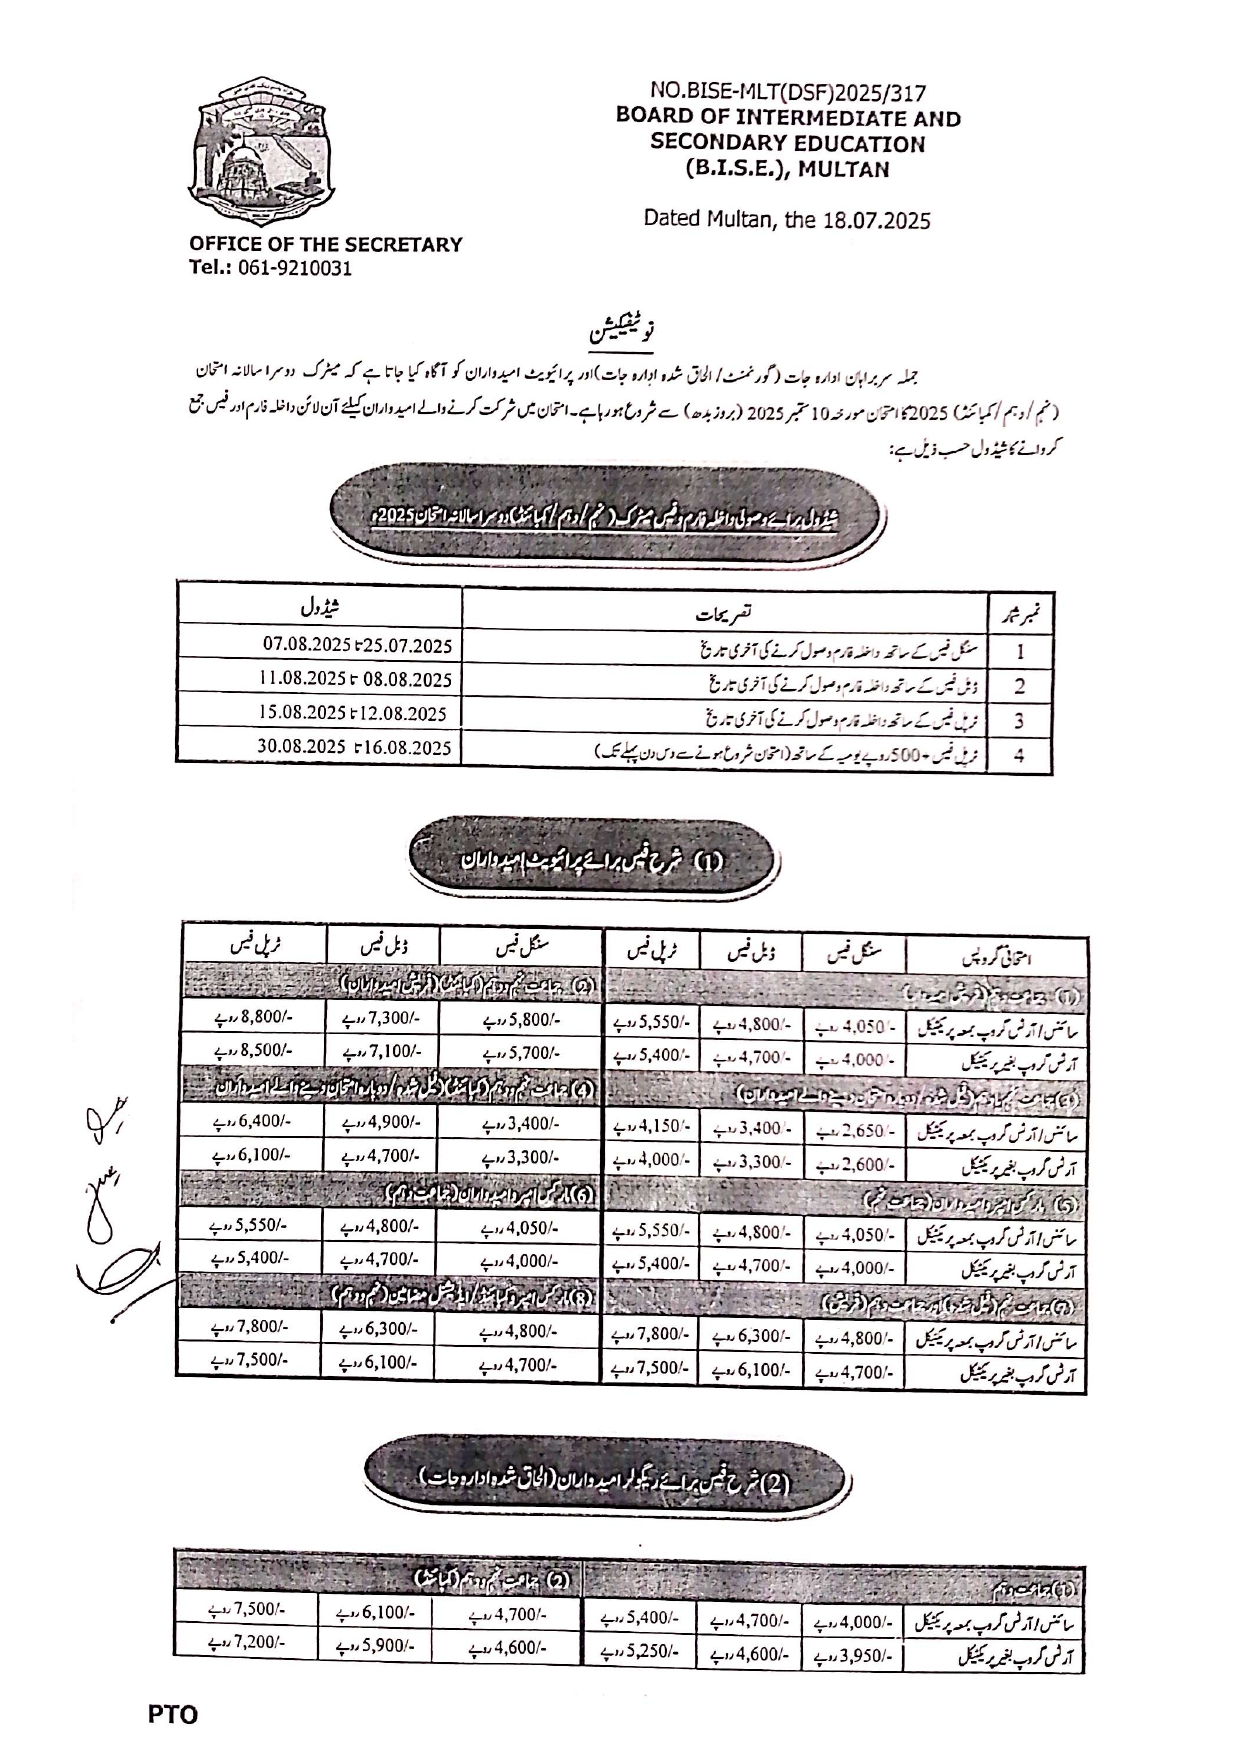 NO.BISE-MLT(DSF)2025/317
BOARD OF INTERMEDIATE AND
SECONDARY EDUCATION
(B.I.S.E.), MULTAN
Dated Multan, the 18.07.2025
OFFICE OF THE SECRETARY
Tel.: 061-9210031
نوٹیفکیشن
جملہ سربراہان ادارہ جات (گورنمنٹ/الحاق شدہ ادارہ جات) اور پرائیویٹ امیدواران کو آگاہ کیا جاتا ہے کہ میٹرک دوسرا سالانہ امتحان
(نہم/دہم/کمبائنڈ) 2025 کا امتحان مورخہ 10 ستمبر 2025 (بروز بدھ) سے شروع ہو رہا ہے۔ امتحان میں شرکت کرنے والے امیدواران کیلئے آن لائن داخلہ فارم اور فیس جمع
کروانے کا شیڈول حسب ذیل ہے:
شیڈول برائے وصولی داخلہ فارم و فیس میٹرک (نہم/دہم/کمبائنڈ) دوسرا سالانہ امتحان 2025ء
نمبر شمار تصریحات شیڈول
1 سنگل فیس کے ساتھ داخلہ فارم وصول کرنے کی آخری تاریخ 25.07.2025 تا 07.08.2025
2 ڈبل فیس کے ساتھ داخلہ فارم وصول کرنے کی آخری تاریخ 08.08.2025 تا 11.08.2025
3 ٹرپل فیس کے ساتھ داخلہ فارم وصول کرنے کی آخری تاریخ 12.08.2025 تا 15.08.2025
4 ٹرپل فیس +500 روپے یومیہ کے ساتھ (امتحان شروع ہونے سے دس دن پہلے تک) 16.08.2025 تا 30.08.2025
(1) شرح فیس برائے پرائیویٹ امیدواران
امتحانی گروپس سنگل فیس ڈبل فیس ٹرپل فیس سنگل فیس ڈبل فیس ٹرپل فیس
(1) جماعت دہم (فریش امیدوار) (2) جماعت نہم و دہم (کمبائنڈ) (فریش امیدواران)
سائنس/آرٹس گروپ بمعہ پریکٹیکل 4,050/- روپے 4,800/- روپے 5,550/- روپے 5,800/- روپے 7,300/- روپے 8,800/- روپے
آرٹس گروپ بغیر پریکٹیکل 4,000/- روپے 4,700/- روپے 5,400/- روپے 5,700/- روپے 7,100/- روپے 8,500/- روپے
(3) جماعت نہم یا دہم (فیل شدہ/دوبارہ امتحان دینے والے امیدواران) (4) جماعت نہم و دہم (کمبائنڈ) (فیل شدہ/دوبارہ امتحان دینے والے امیدواران
سائنس/آرٹس گروپ بمعہ پریکٹیکل 2,650/- روپے 3,400/- روپے 4,150/- روپے 3,400/- روپے 4,900/- روپے 6,400/- روپے
آرٹس گروپ بغیر پریکٹیکل 2,600/- روپے 3,300/- روپے 4,000/- روپے 3,300/- روپے 4,700/- روپے 6,100/- روپے
(5) مارکس امپرو امیدواران (جماعت نہم) (6) مارکس امپرو امیدواران (جماعت دہم)
سائنس/آرٹس گروپ بمعہ پریکٹیکل 4,050/- روپے 4,800/- روپے 5,550/- روپے 4,050/- روپے 4,800/- روپے 5,550/- روپے
آرٹس گروپ بغیر پریکٹیکل 4,000/- روپے 4,700/- روپے 5,400/- روپے 4,000/- روپے 4,700/- روپے 5,400/- روپے
(7) جماعت نہم (فیل شدہ) اور جماعت دہم (فریش) (8) مارکس امپرو کمبائنڈ/ایڈیشنل مضامین (نہم و دہم)
سائنس/آرٹس گروپ بمعہ پریکٹیکل 4,800/- روپے 6,300/- روپے 7,800/- روپے 4,800/- روپے 6,300/- روپے 7,800/- روپے
آرٹس گروپ بغیر پریکٹیکل 4,700/- روپے 6,100/- روپے 7,500/- روپے 4,700/- روپے 6,100/- روپے 7,500/- روپے
(2) شرح فیس برائے ریگولر امیدواران (الحاق شدہ ادارہ جات)
(1) جماعت دہم (2) جماعت نہم و دہم (کمبائنڈ)
سائنس/آرٹس گروپ بمعہ پریکٹیکل 4,000/- روپے 4,700/- روپے 5,400/- روپے 4,700/- روپے 6,100/- روپے 7,500/- روپے
آرٹس گروپ بغیر پریکٹیکل 3,950/- روپے 4,600/- روپے 5,250/- روپے 4,600/- روپے 5,900/- روپے 7,200/- روپے
PTO